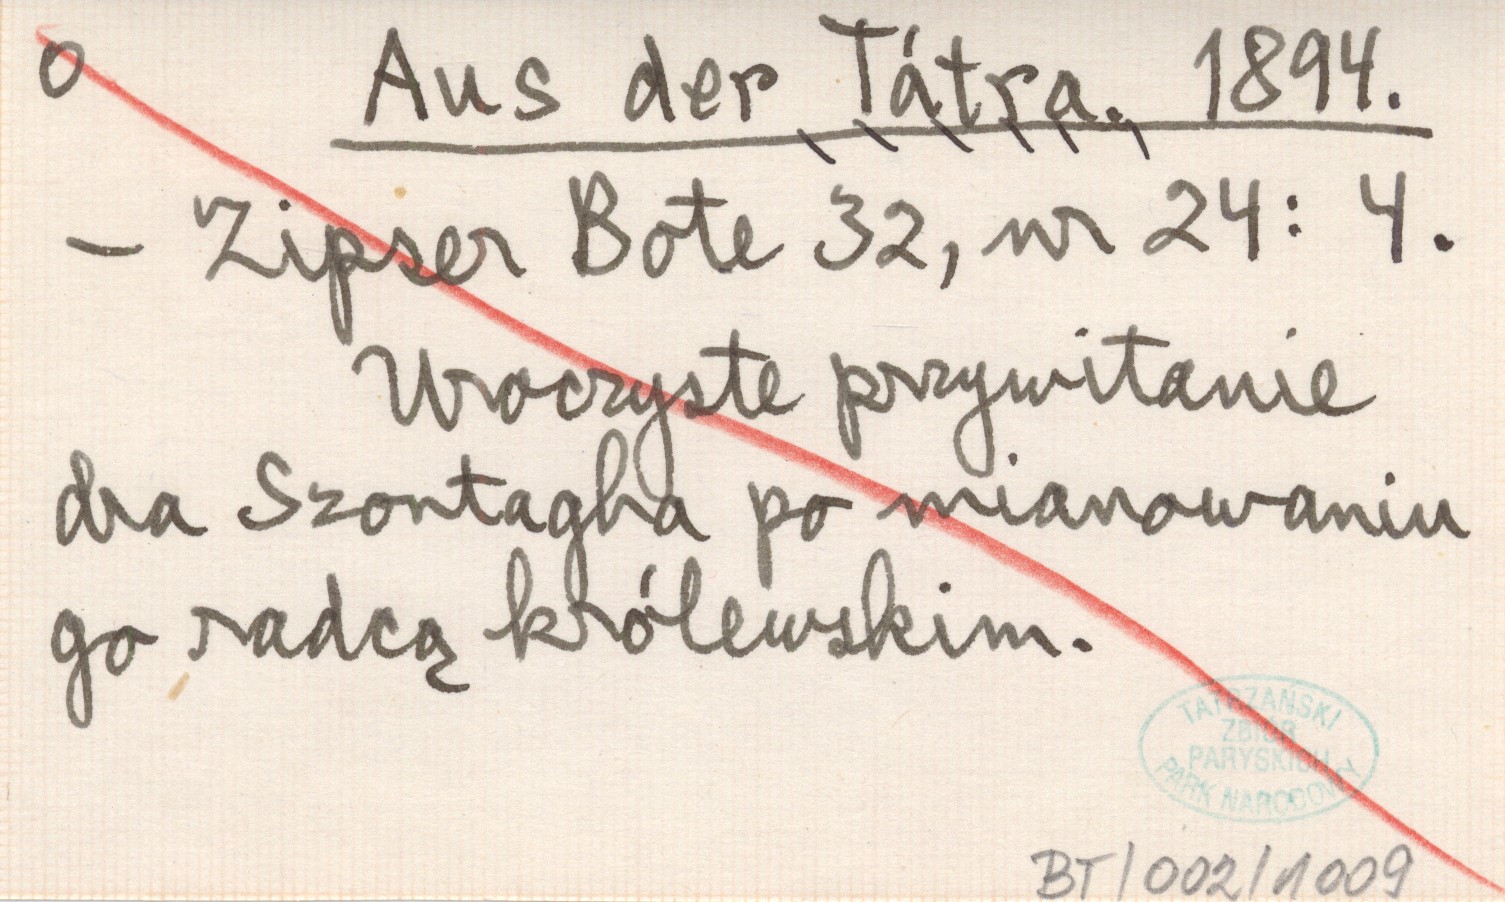 o Aus der Tátra. 1894.
– Zipser Bote 32, nr 24: 4.
Uroczyste przywitanie
dra Szontagha po mianowaniu
go radcą królewskim.
TATRZAŃSKI
ZBIÓR
PARYSKICH
PARK NARODOWY
BT/002/1009